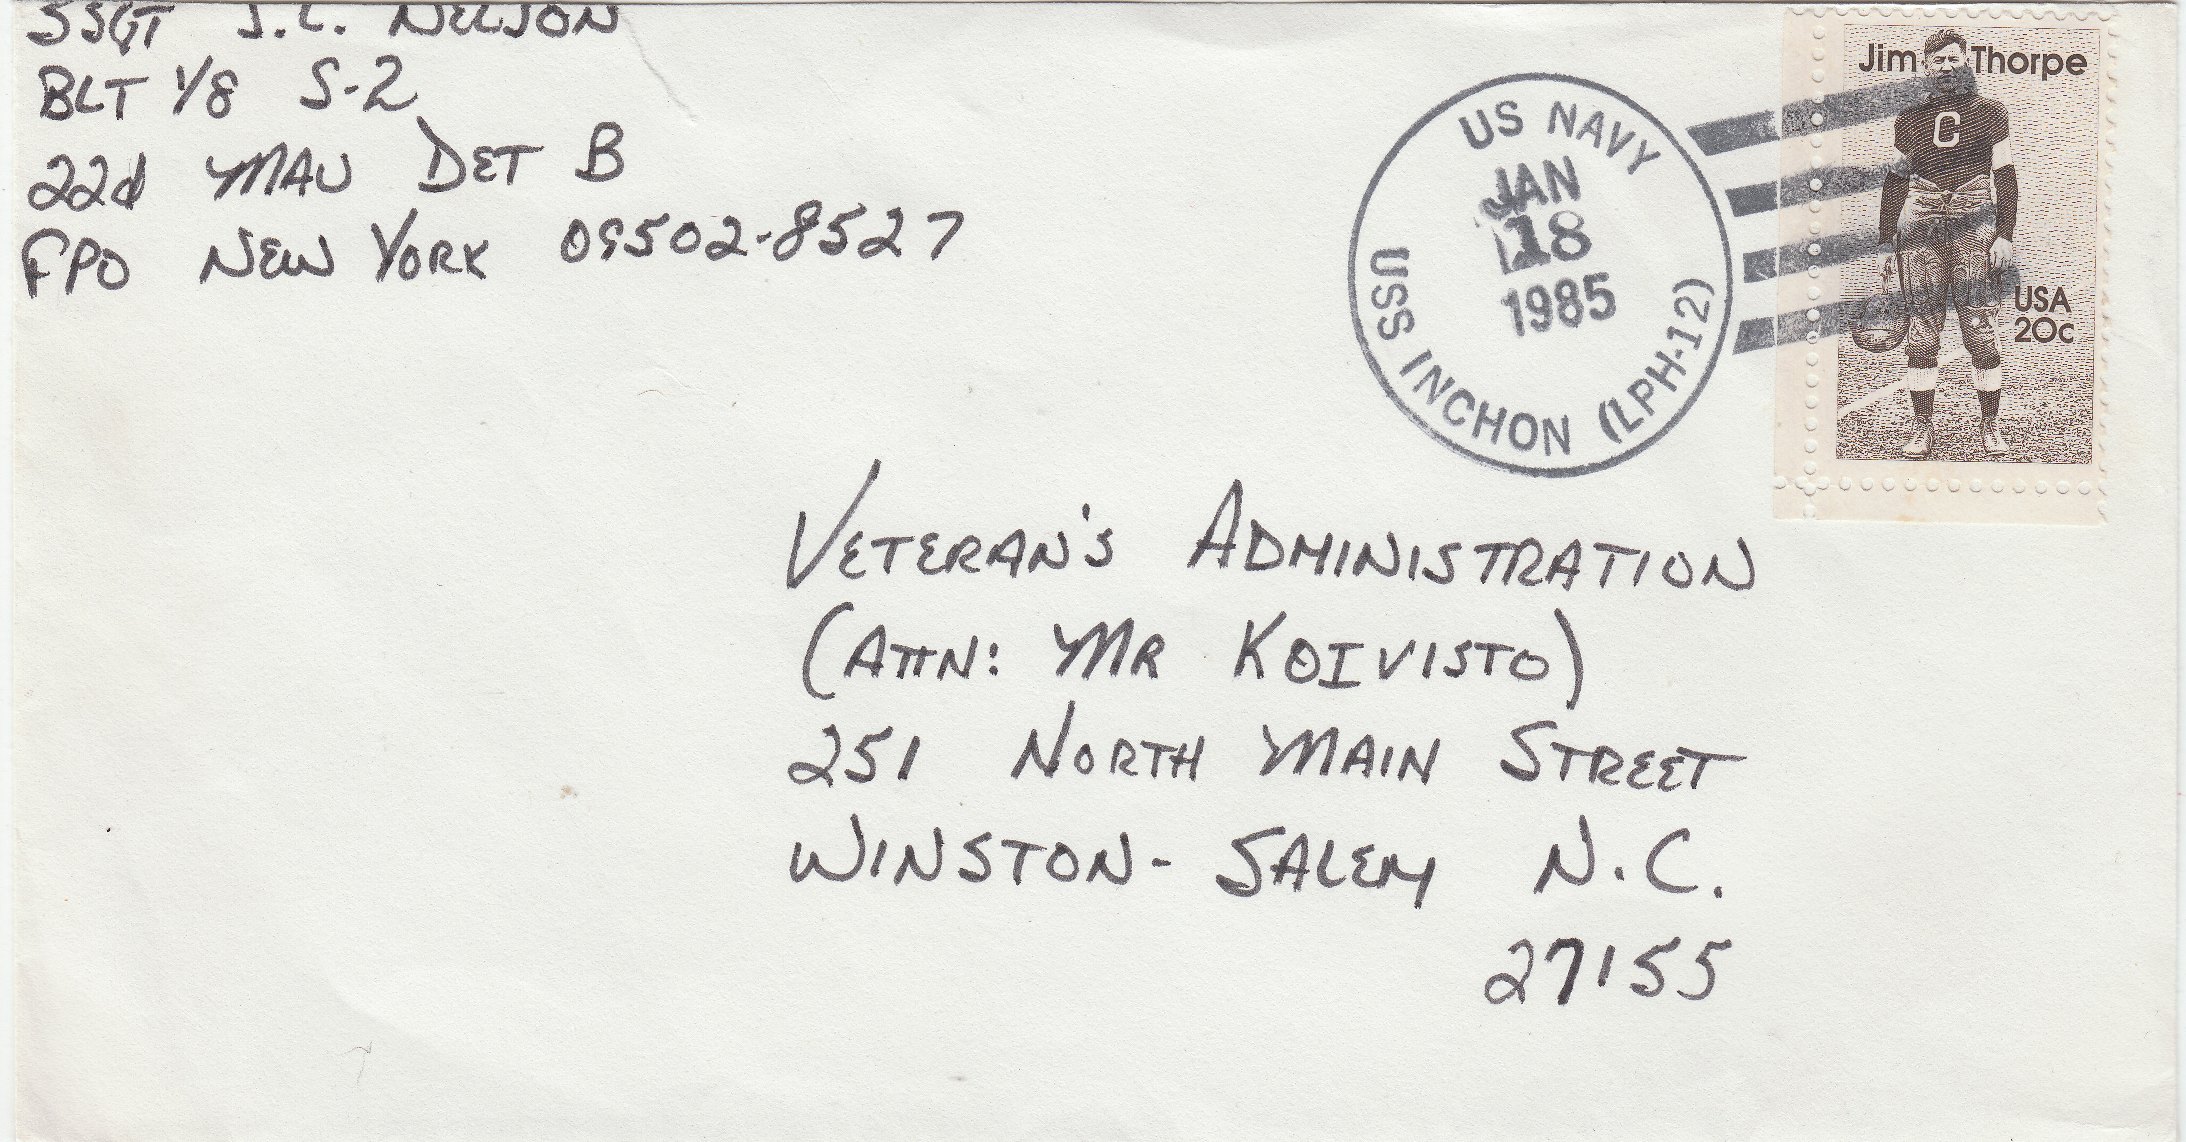 SSGT J.L. NELSON
BLT 1/8 S-2
22d MAU DET B
FPO NEW YORK 09502-8527
US NAVY
JAN
18
1985
USS INCHON (LPH-12)
Jim Thorpe
C
USA
20c
VETERAN'S ADMINISTRATION
(ATTN: MR KOIVISTO)
251 NORTH MAIN STREET
WINSTON-SALEM N.C.
27155